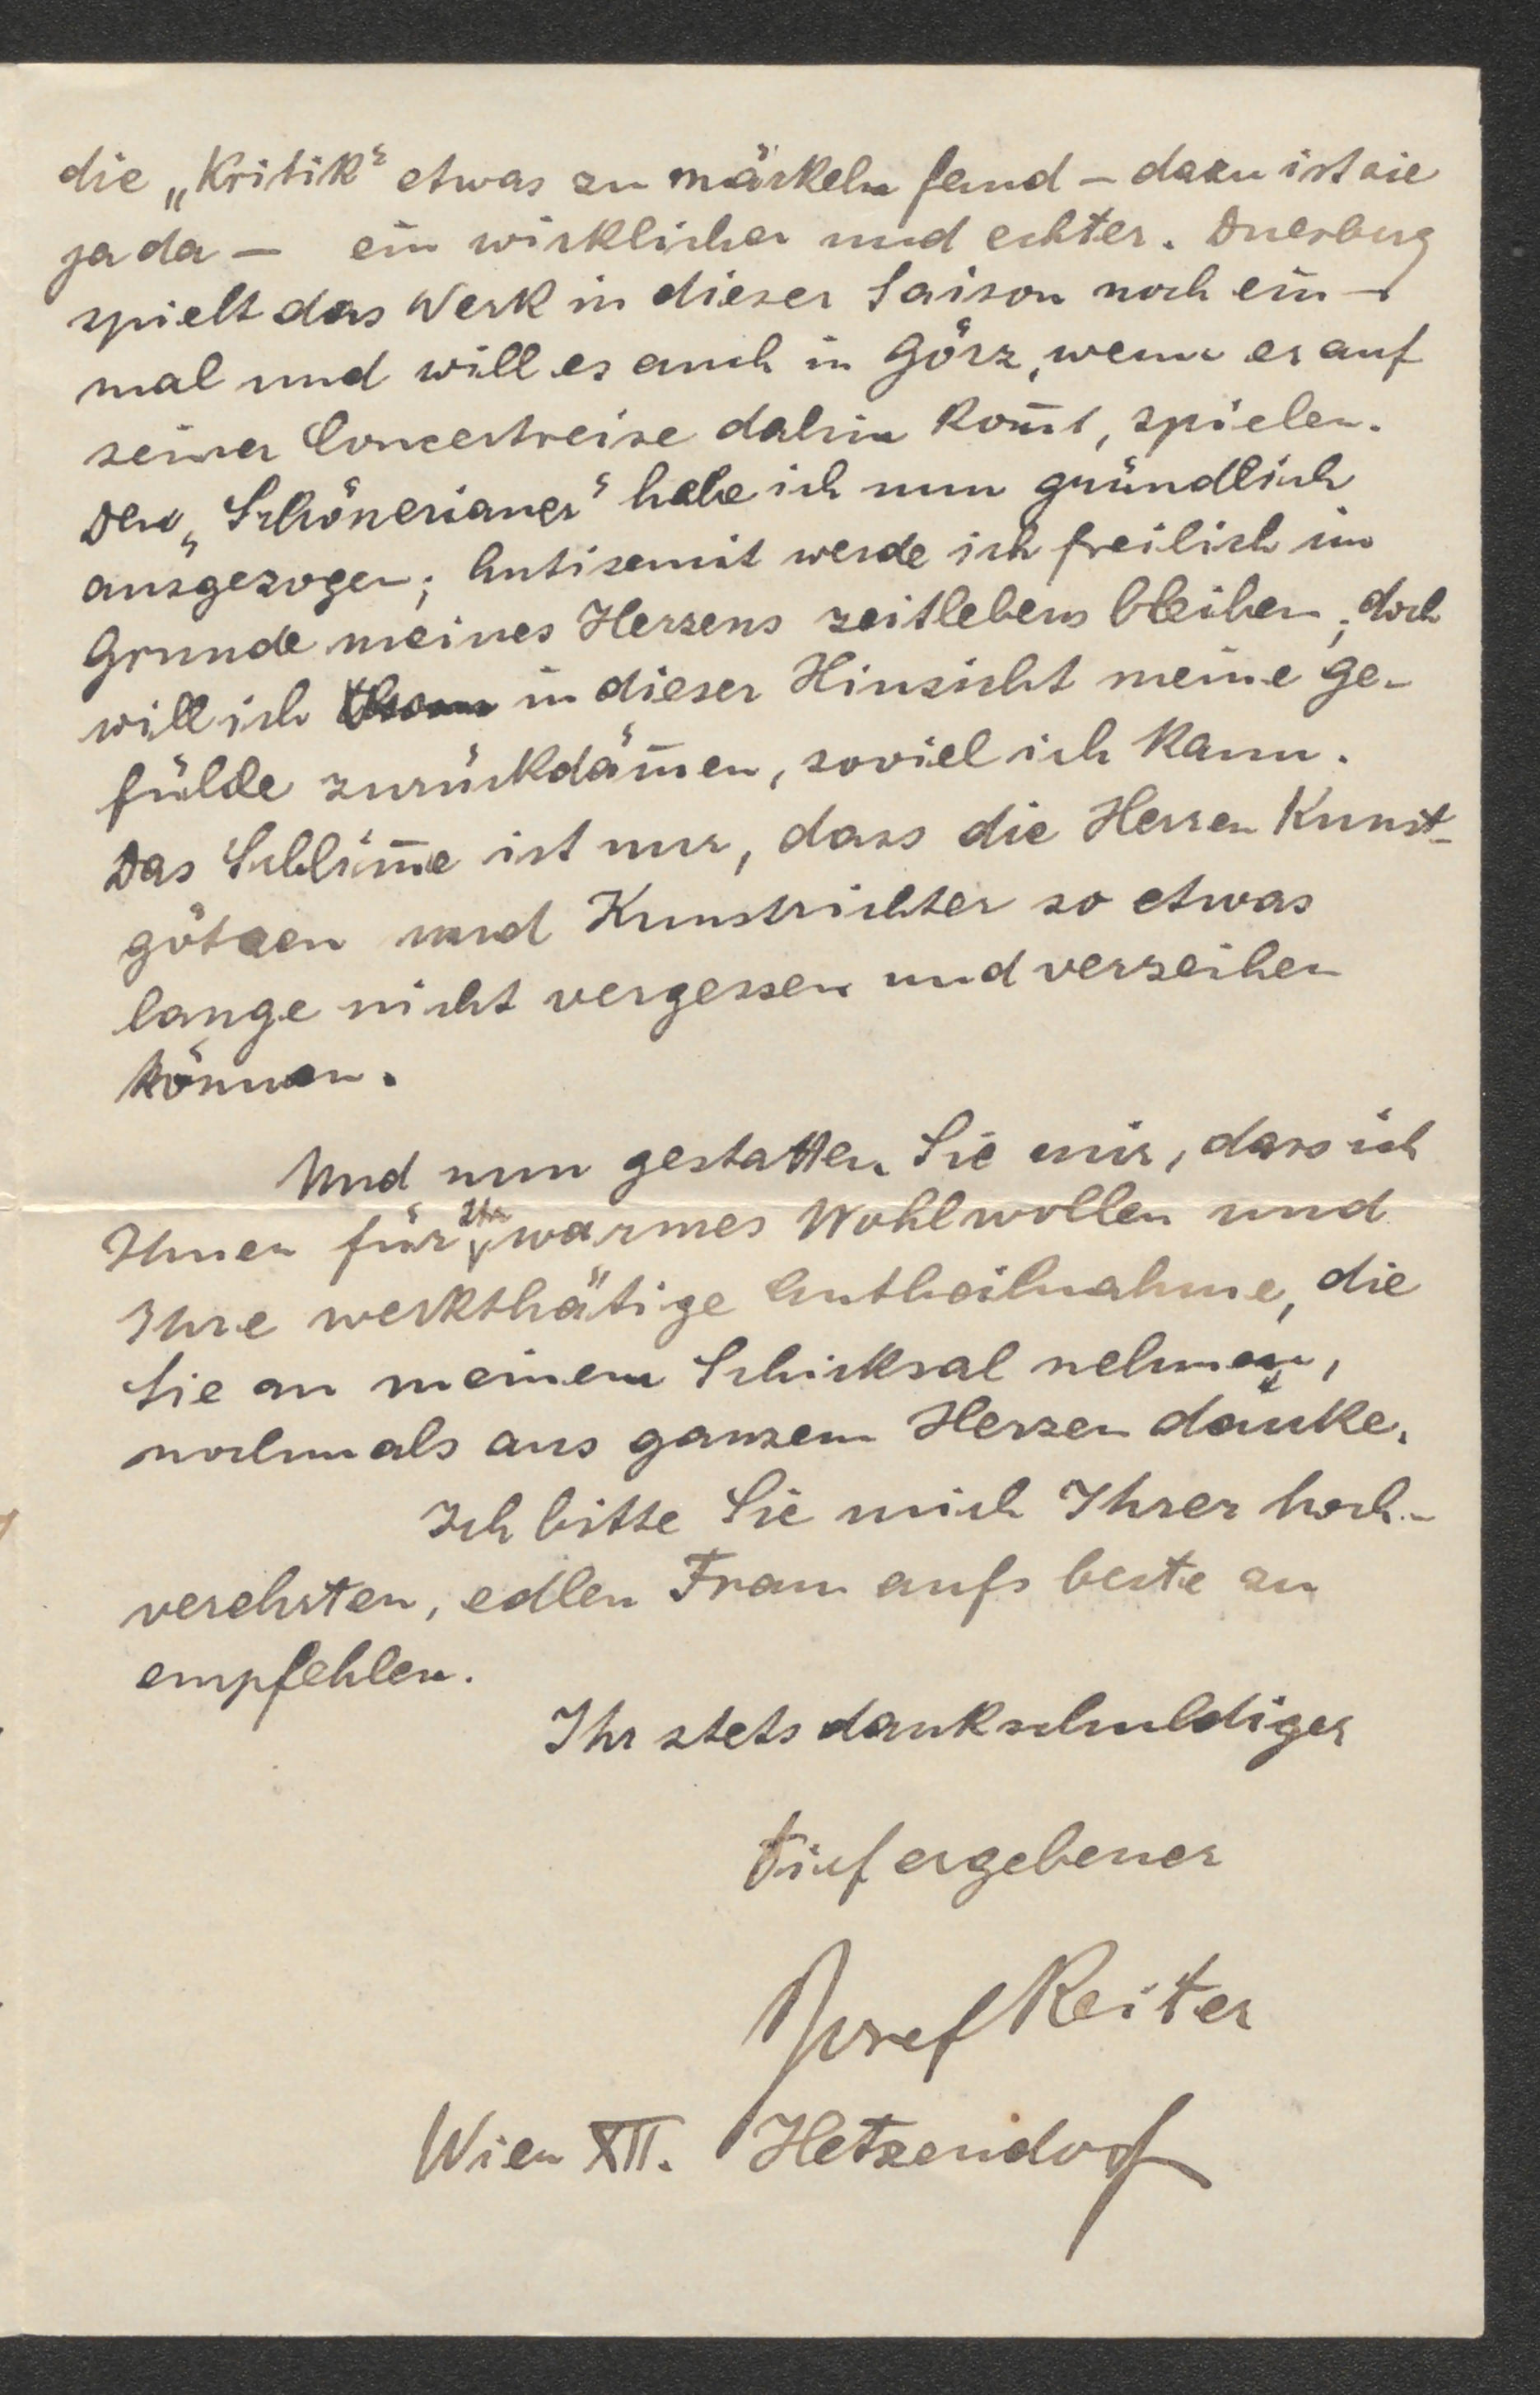 die „Kritik“ etwas zu mäkeln fand – dazu ist sie
ja da – ein wirklicher und echter. Duesberg
spielt das Werk in dieser Saison noch ein-
mal und will es auch in Görz, wenn er auf
seiner Concertreise dahin kom̄t, spielen.
Den „Schönerianer“ habe ich nun gründlich
ausgezogen; Antisemit werde ich freilich im
Grunde meines Herzens zeitlebens bleiben; doch
will ich in dieser Hinsicht meine Ge-
fühle zurückdäm̄en, soviel ich kann.
Das Schlim̄e ist nur, dass die Herren Kunst-
götzen und Kunstrichter so etwas
lange nicht vergessen und verzeihen
können.
Und nun gestatten Sie mir, dass ich
Ihnen für Ihr warmes Wohlwollen und
Ihre werkthätige Antheilnahme, die
Sie an meinem Schicksal nehmen,
nochmals aus ganzem Herzen danke.
Ich bitte Sie mich Ihrer hoch-
verehrten, edlen Frau aufs beste zu
empfehlen.
Ihr stets dankschuldiger
tiefergebener
Josef Reiter
Wien XII. Hetzendorf